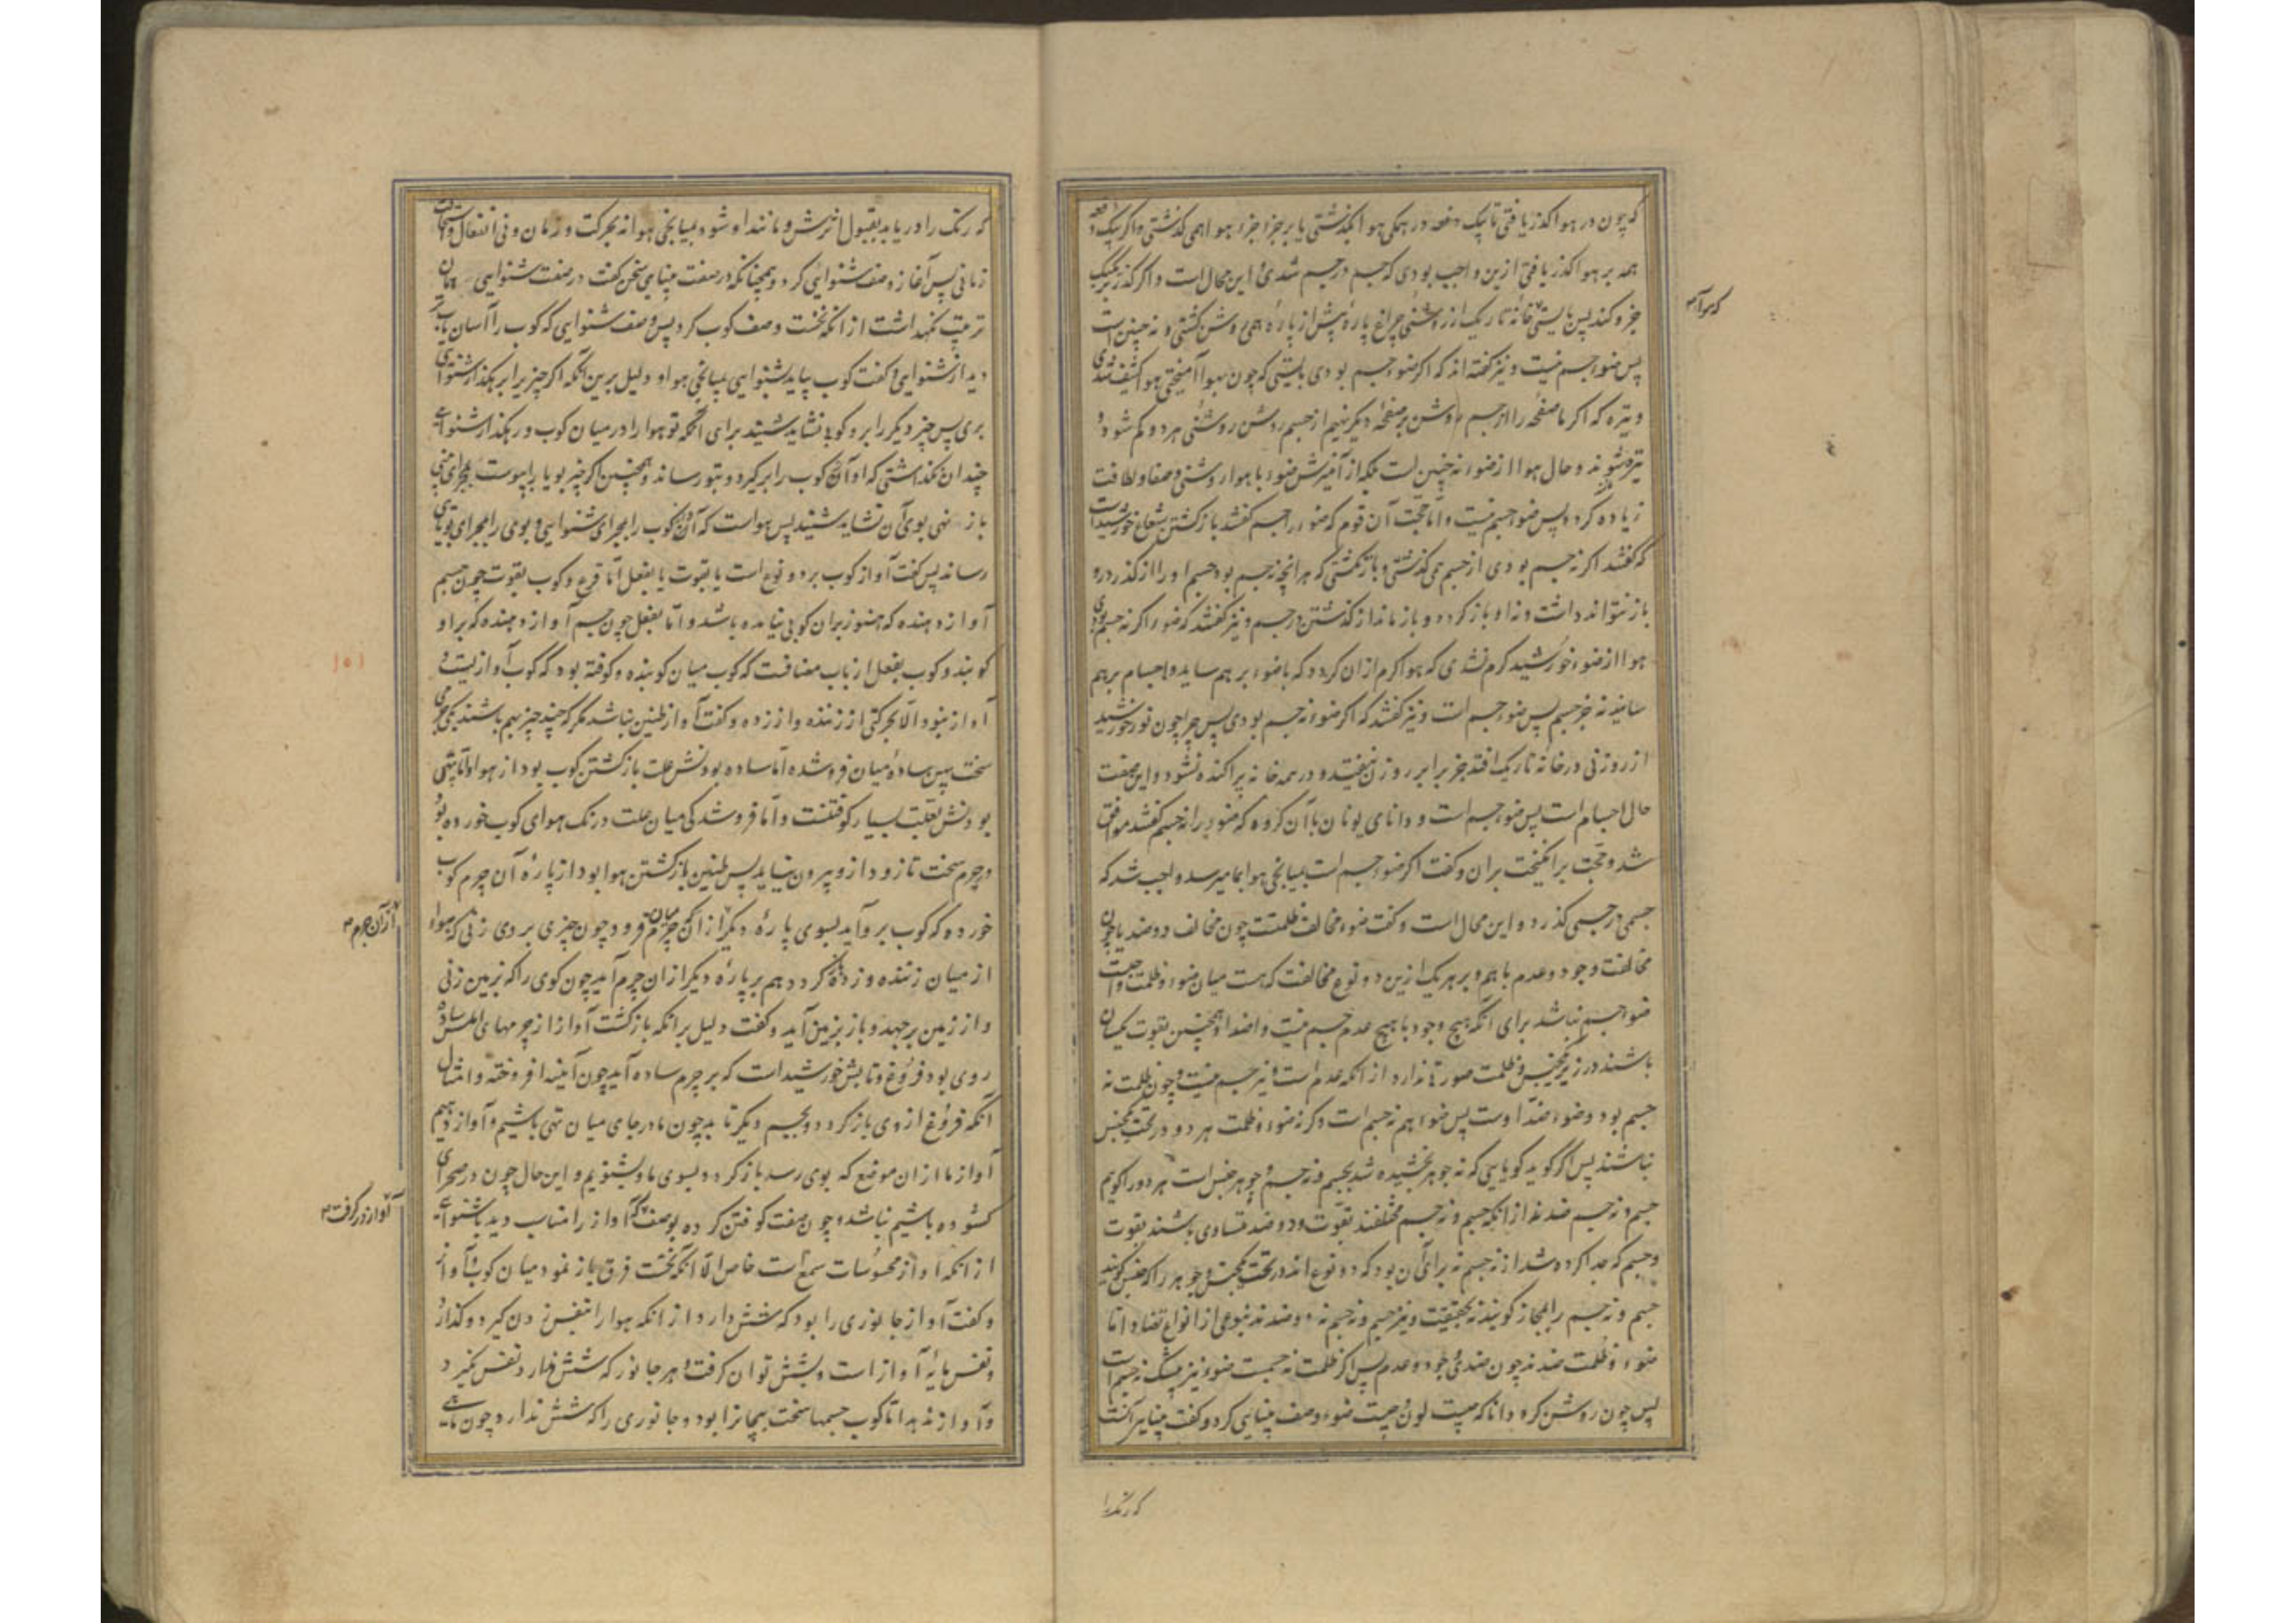 که چون در هوا گذر یافتی تا بیک دفعه در همکی هوا بکذشتی یا بر جزء جزء هوا همی کذشتی و اکر بیک دفعه
همه بر هوا کذر یافتی ازین واجب بودی که جسم در جسم شدی و این محال است و اکر کذر بر یک یک
جزو کند پس بایستی خانه تاریک از روشنی چراغ پاره پیش از پاره همی روشن کشتی و نه چنین است
پس ضوء جسم نیست و نیز کفته اند که اکر ضوء جسم بودی بایستی که چون بهوا آمیختی هوا کثیف شدی
و تیره که اکر ما صفحه را از جسم روشن بر صفحه دیکر نهیم از جسم روشن روشنی هر دو کم شود و
تیره شوند و حال هوا از ضوء نه چنین است بلکه از آمیزش ضوء با هوا روشنی و صفا و لطافت
زیاده کردد پس ضوء جسم نیست و اما حجت آن قوم که ضوء را جسم کفتند باز کشتن شعاع خورشید است
که کفتند اکر نه جسم بودی از جسم همی کذشتی و باز نکشتی که هر آنچه نه جسم بود جسم او را از کذر در او
باز نتواند داشت و نه او باز کردد و باز ماند از کذشتن در جسم و نیز کفتند که ضوء اکر نه جسم بودی
هوا از ضوء خورشید کرم نشدی که هوا کرم ازان کردد که با ضوء بر هم ساید و اجسام بر هم
سایند نه جز جسم پس ضوء جسم است و نیز کفتند که اکر ضوء نه جسم بودی پس چرا چون نور خورشید
از روزنی در خانه تاریک افتد جز برابر روزن نیفتد و در همه خانه پراکنده نشود و این صفت
حال اجسام است پس ضوء جسم است و دانای یونان با آن کروه که ضوء را نه جسم کفتند موافق
شد و حجت برانکیخت بران و کفت اکر ضوء جسم است بمیانجی هوا بما میرسد واجب شد که
جسمی در جسمی کذرد و این محال است و کفت ضوء مخالف ظلمتست چون مخالف دو ضد یا چون
مخالفت وجود و عدم با هم و بر هر یک ازین دو نوع مخالفت که هست میان ضوء و ظلمت واجبست
ضوء جسم نباشد برای آنکه هیچ وجود با هیچ عدم جسم نیست و اضداد همچنین بقوت یکسان
باشند در زیر یکجنس و ظلمت صورتی ندارد از آنکه عدم است و نیز جسم نیست و چون ظلمت نه
جسم بود و ضوء ضد اوست پس ضوء هم نه جسم است و کر نه ضوء و ظلمت هر دو در تحت یکجنس
نباشند پس اکر کوید کویایی که نه جوهر بخشیده شد بجسم و نه جسم و جوهر جنس است هر دو را کویم
جسم و نه جسم ضد نه اند از آنکه جسم و نه جسم مختلفند بقوت و دو ضد متساوی باشند بقوت
و جسم که جدا کرده شد از نه جسم نه برای آن بود که دو نوع اند در تحت یکجنس و جوهر را که جنس کویند
جسم و نه جسم را بمجاز کویند نه بحقیقت و نیز جسم و نه جسم نه دو ضدند بنوعی از انواع تضاد اما
ضوء و ظلمت ضدند چون ضدی وجود و عدم پس اکر ظلمت نه جسمست ضوء نیز بیشک نه جسم است
پس چون روشن کرد دانا که چیست لون و چیست ضوء وصف بینایی کرد و کفت بینایی آنست
که رنک را
که هوا آ
که رنک را دریابد بقبول اثرش و مانند او شود بمیانجی هوا نه بحرکت و زمان و نی انتقال و استحالت
زمانی پس آغاز وصف شنوایی کرد و همچنانکه در صفت بینایی سخن کفت در صفت شنوایی همان
ترتیب نکهداشت از آنکه نخست وصف کوب کرد پس وصف شنوایی که کوب را آسان یاب تر
دید از شنوایی و کفت کوب بیاید بشنوایی بمیانجی هوا و دلیل برین آنکه اکر چیز برابر رهکذار شنوایی
بری پس چیز دیکر را برو کوبی نشاید شنید برای آنکه تو هوا را در میان کوب و رهکذار شنوایی
چندان نکذاشتی که او آن کوب را برکیرد و بتو رساند و همچنین اکر چیز بویا را بپوست بمجرای بینی
باز نهی بوی آن نشاید شنید پس هواست که آن کوب را بمجرای شنوایی و بوی را بمجرای بویایی
رساند پس کفت آواز کوب بر دو نوع است یا بقوت یا بفعل اما قرع و کوب بقوت چون جسم
آواز دهنده که هنوز بران کوبی نیامده باشد و اما بفعل چون جسم آواز دهنده که بر او
کوبند و کوب بفعل از باب مضافست که کوب میان کوبنده و کوفته بود که کوب آوازیست و
آواز نبود الا بحرکتی از زننده و از زده و کفت آواز طنین نباشد مکر که چند چیز بهم باشند یکی جرمی
سخت پس ساده میان فروشده اما ساده بودنش علت باز کشتن کوب بود از هوا و اما تهی
بودنش تعلب بسیار کوفتنست و اما فروشدکی میان علت درنک هوای کوب خورده بود
در جرم سخت تا زود ازو بیرون نیاید پس طنین باز کشتن هوا بود از پاره آن جرم کوب
خورده که کوب برو آید بسوی پاره دیکر از آن جرم میان فرود چون چیزی بر وی زنی که هوا
از میان زننده و زده باز کردد هم بر پاره دیکر ازان جرم آید چون کوی را که بزمین زنی
و از زمین برجهد و باز بزمین آید و کفت دلیل بر آنکه بازکشت آواز از جرمهای املس ساده
روی بود فروغ و تابش خورشید است که بر جرم ساده آید چون آیینه افروخته و امثال
آنکه فروغ از وی باز کردد و بجسم دیکر تابد چون ما در جای میان تهی باشیم و آواز دهیم
آواز ما ازان موضع که بوی رسد باز کردد بسوی ما و بشنویم و این حال چون در صحرای
کشوده باشیم نباشد و چون صفت کوفتن کرده بوصف آواز را مناسب دید با شنوایی
از آنکه آواز محسوسات سمع است خاص الا آنکه نخست فرق باز نمود میان کوب و آواز
و کفت آواز جانوری را بود که شش دارد از آنکه هوا را بنفس زدن کیرد و کذارد
و نفس مایه آواز است و بشش توان کرفت و هر جانور که شش ندارد نفس نکیرد
و آواز ندهد اما کوب جسمها سخت بیجانرا بود و جانوری را که شش ندارد چون ماهی
از آن جرم
آواز در کرفت
۱۵۱